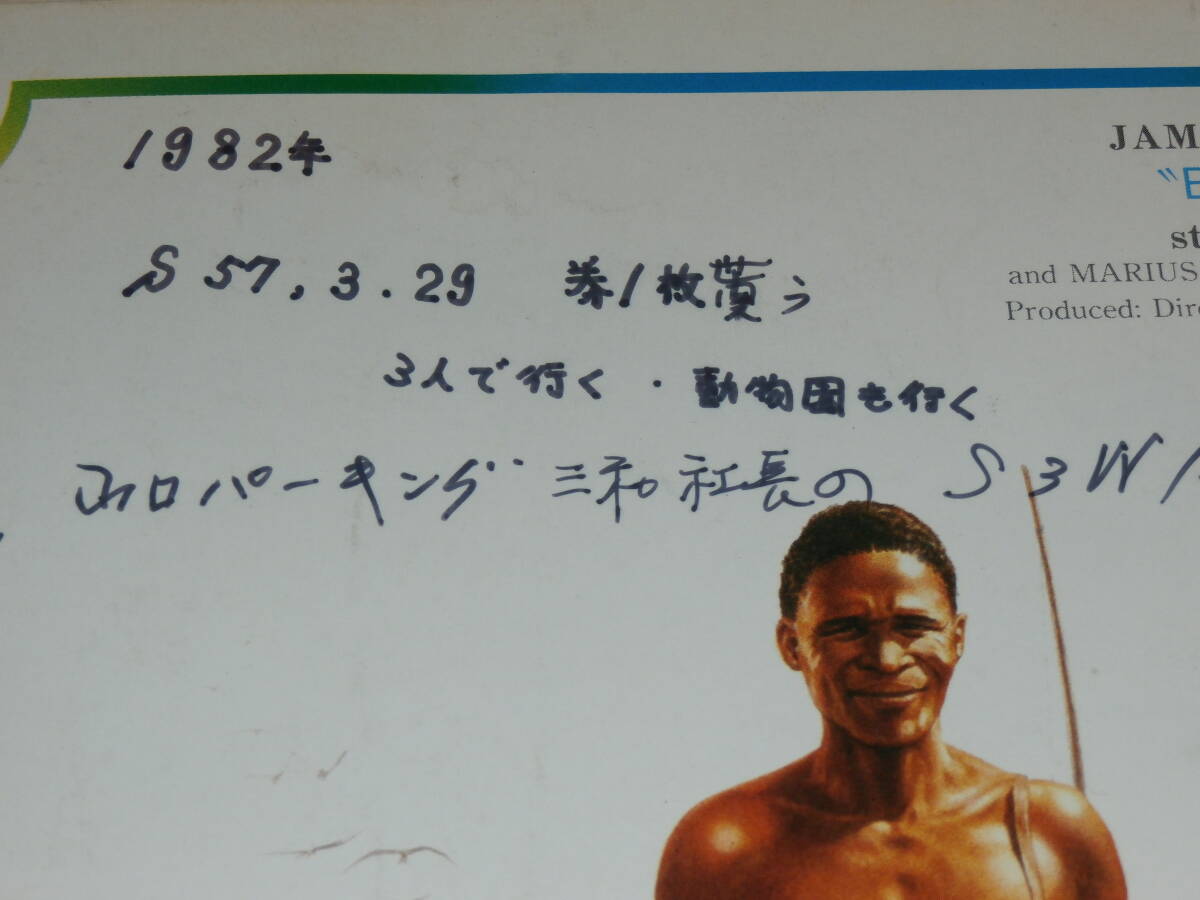 1982年
JAM
S 57.3.29 券1枚貰う
"E
st
and MARIUS
Produced: Dire
3人で行く・動物園も行く
パーキング 三和社長の S3W